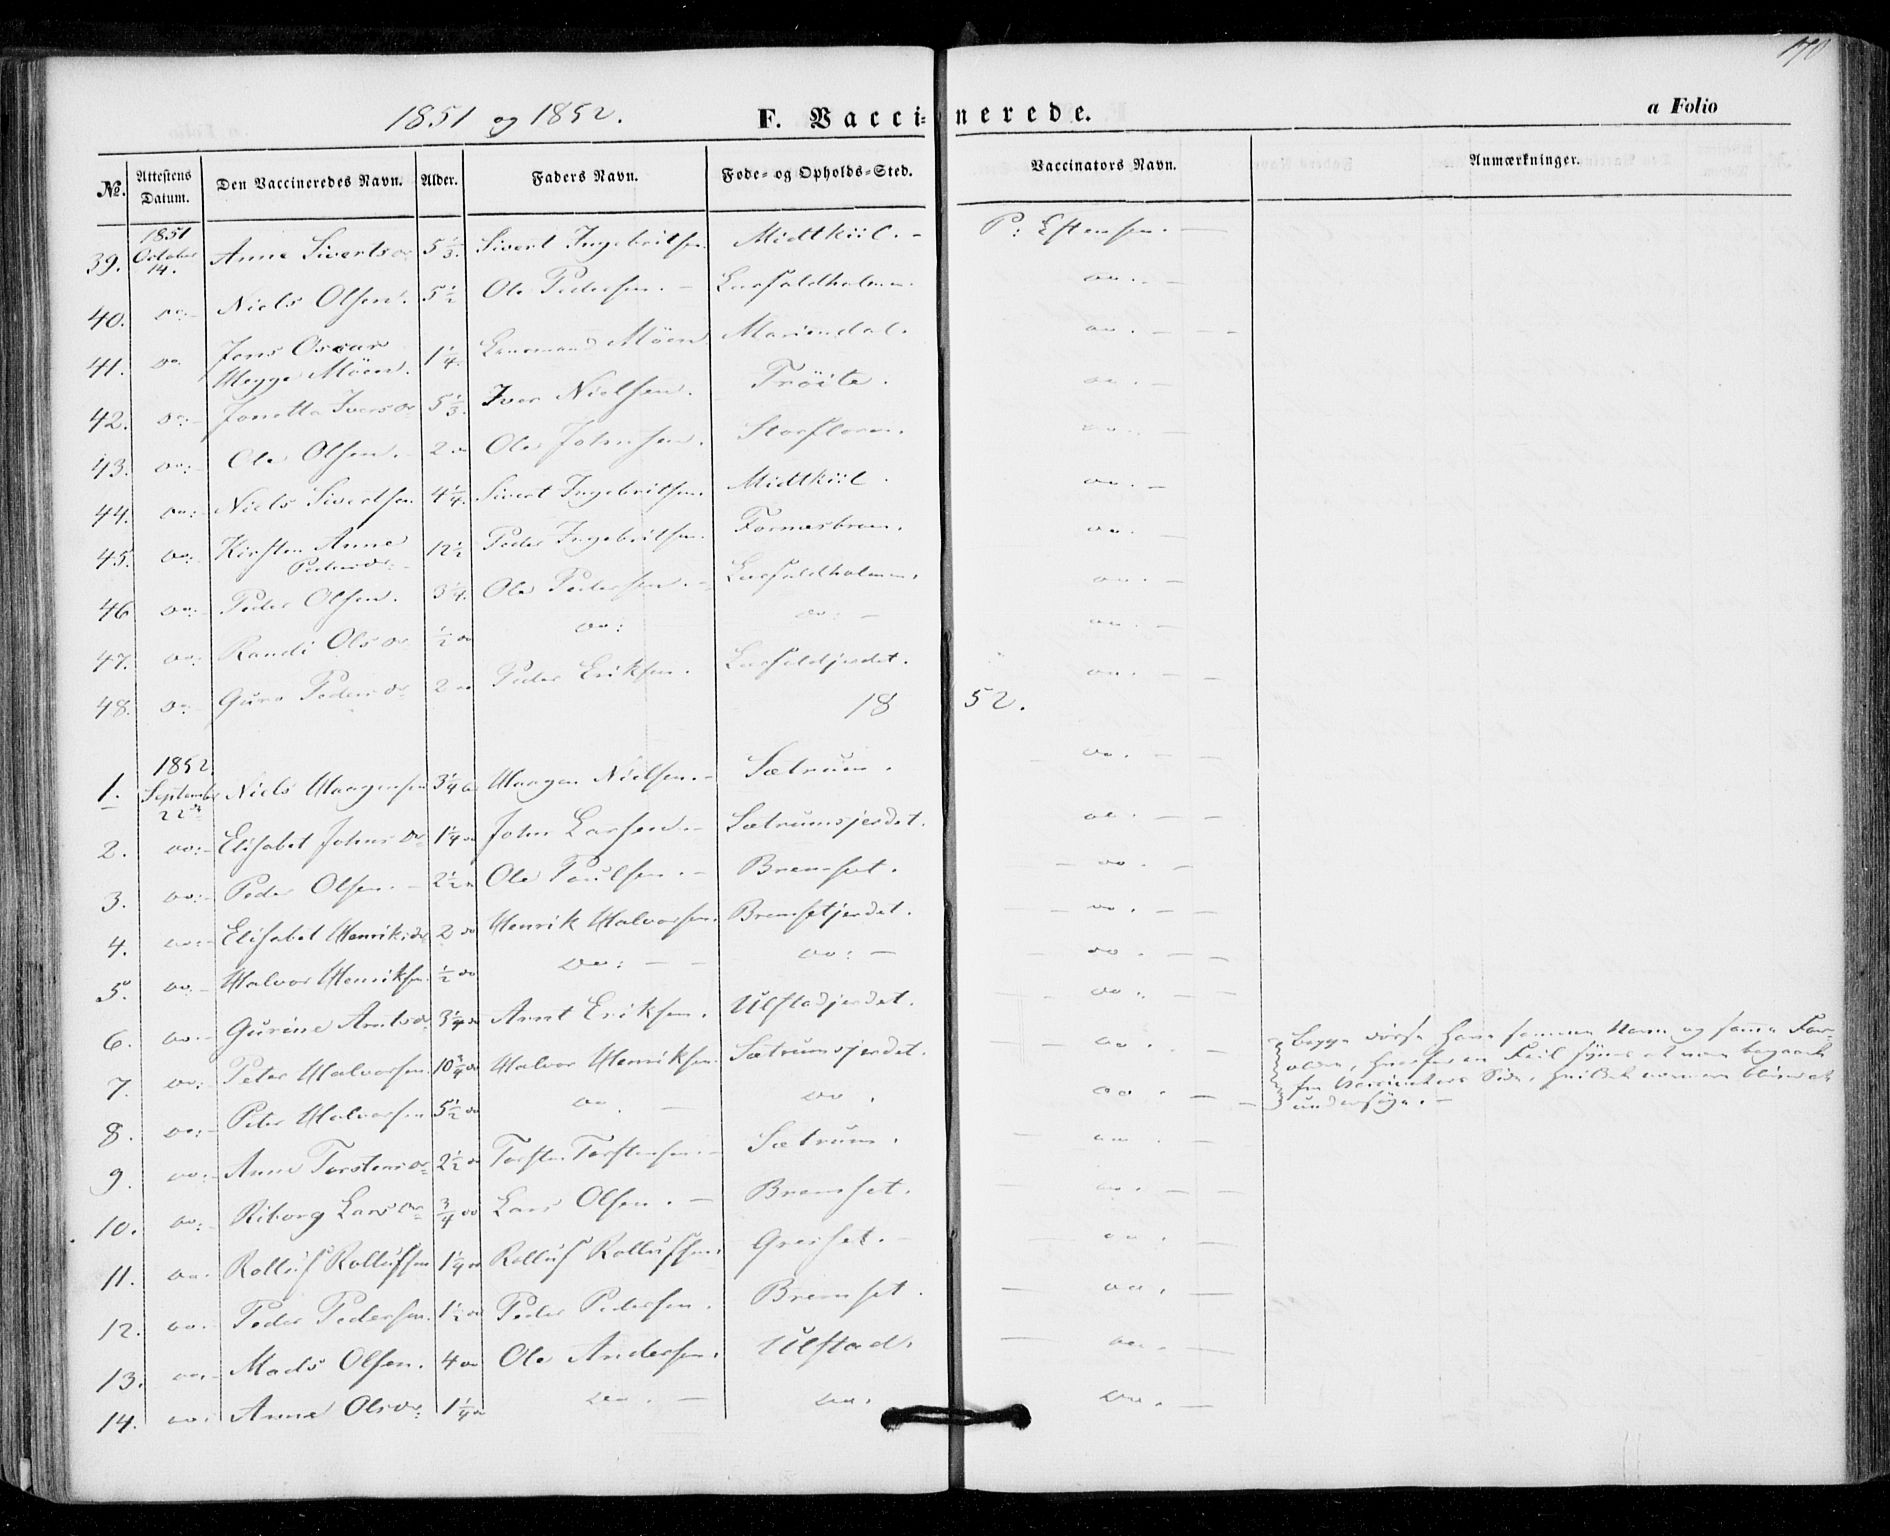 170
1851 og 1852.
F. Vaccinerede.
a Folio
No. Attestens Datum. Den Vaccineredes Navn. Alder. Faders Navn. Føde- og Opholds-Sted. Vaccinators Navn. Anmærkninger.
39. 1851 October 14. Anne Sivertsdr 5 1/3. Sivert Ingebritsen. Midtkiil. - P: Estensen. -
40. do:- Niels Olsen. 5 1/2 Ole Pedersen. - do. -
41. do Jens Oscar
Møen. 1 1/4. Møen Mariendal. do. - - -
42. do:- Jonetta Iversdr 5 1/3. Iver Nielsen. Trøite. do. -
43. do:- Ole Olsen. - 2 do Ole Johnsen. Storfloren. do. - -
44. do:- Niels Sivertsen 4 1/4. Sivert Ingebritsen. Midtkiil. do. -
45. do:- Kirsten Anne
Pedersdr. - 12 1/2 Peder Ingebritsen. do. -
46 do:- Peder Olsen. 3 1/4. Ole Pedersen. - do. -
47. do:- Randi Olsdr 1/2 do do: do: - do. -
48. do:- Guro Pedersdr 2 do Peder Eriksen. do. - -
1852.
1. 1852. September 22de Niels Haagensen 3 1/4 do Haagen Nielsen. - Sætrum. do. - -
2. do:- Elisabet Johnsdr 1 1/4 do John Larsen. - Sætrumsjerdet. do. - -
3. do:- Peder Olsen. - 2 1/2 do Ole Paulsen. - Bremset. - do. -
4. do:- Elisabet Henriksdr 2 do Henrik Halvorsen. Bremsetjerdet. - do. - -
5. do:- Halvor Henriksen. 1/2 do do: - - do: - - do. - -
6. do:- Gurine Arntsdr 3 1/4 do Arnt Eriksen. Ulstadjerdet. - do. -
7. do:- Peter Halvorsen 10 3/4 do Halvor Henriksen. Sætrumsjerdet. - do. - - Begge disse have samme Navn og samme For-
8. do:- Peter Halvorsen 5 1/2 do do. - do. do. - - ældre, hvorfor en Feil synes at være begaaet
fra Vaccinators Side, hvilket
undersøge. -
9. do:- Anne Torstensdr 2 1/2 do Torsten Torstensen. - Sætrum. - do. -
10. do:- Riborg Larsdr 3/4 do Lars Olsen. - Bremset. - do. - -
11. do. Rolluf Rollufsen 1 1/4 do Rolluf Rollufsen. Greiset. - - do. -
12. do. Peder Pedersen. 1 1/2 do Peder Pedersen. Bremset. - do. -
13. do. Mads Olsen. 4 do Ole Andersen. Ulstad. - do. -
14. do. Anne Olsdr. 1 1/4 do do. - do. do. -